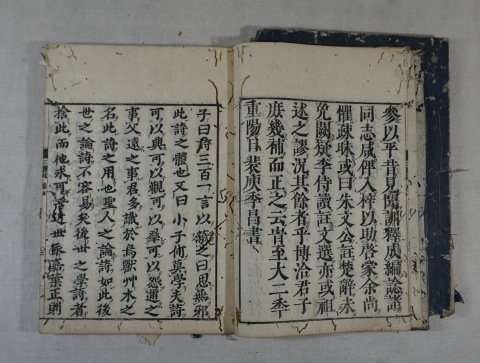 參以平昔見聞訓釋成編諗諸
同志咸俾入梓以助啓蒙余尚
懼疎昧或曰朱文公註楚辭未
免闕疑李侍讀註文選亦或祖
述之謬況其餘者乎博洽君子
庶幾補而正之云峕至大二季
重陽日裴庾季昌書
子曰詩三百一言以蔽之曰思無邪
此詩之體也又曰小子何莫學夫詩
可以興可以觀可以羣可以怨邇之
事父遠之事君多識於鳥獸艸木之
名此詩之用也聖人之論詩如此後
世之論詩不容易矣後世之學詩者
捨此而他求可乎近世嘉葉正則